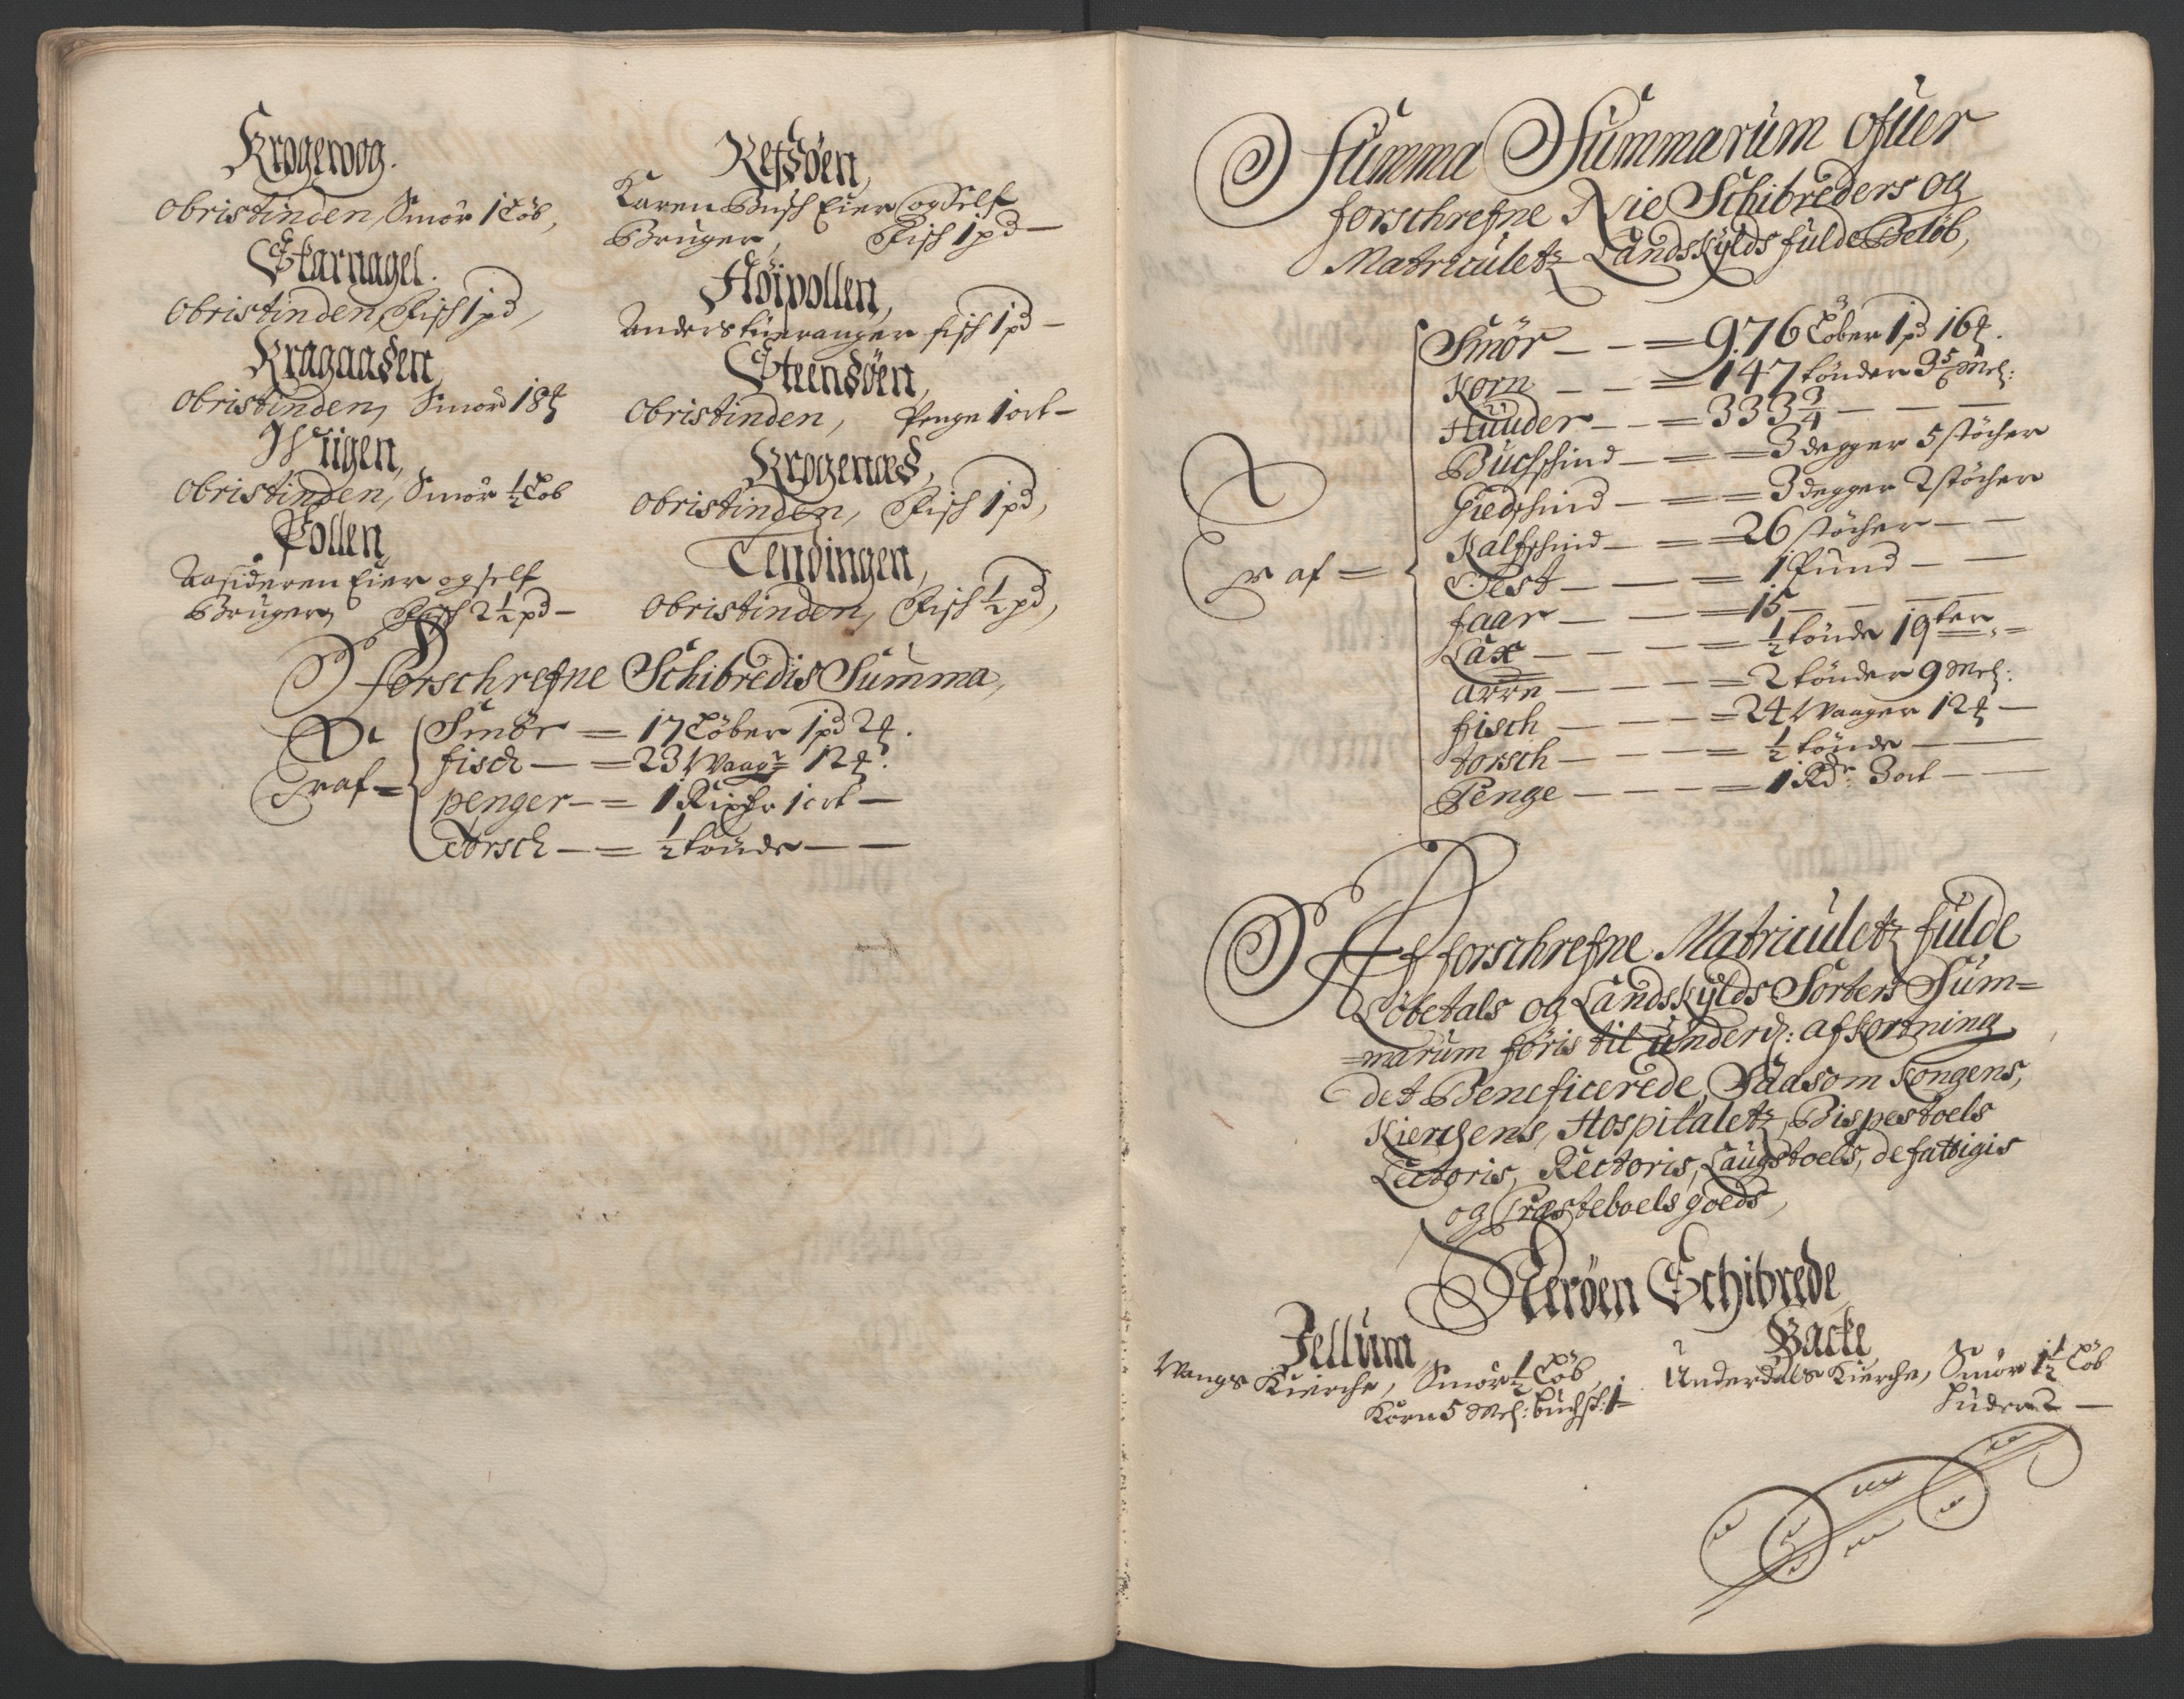 Krogewog.
Obristinden, Smör 1 Löb,
Starnagel.
Obristinden, Fisch 1 pd,
Kragaasen,
Obristinden, Smör 18 ℔
Obristinden, Smör ½ Löb
Pollen,
Eier og self
Bruger, Fisch 2½ pd —
Refsöen,
Karen Busch Eier og Self
Bruger, Fisch 1 pd —
Höipollen,
Anders fisch 1 pd —
Steensöen,
Obristinden, Penge 1 ort —
Krogenæs,
Obristinden, Fisch 1 pd,
Tendingen,
Obristinden, Fisch ½ pd,
Forschrefne Schibredis Summa,
Smör — = 17 Löber 1 pd 2 ℔.
Er af = fisch — = 23 Waagr 12 ℔.
penger — = 1 Rixdr 1 ort —
Torsch — = ½ tönde — —
Summa Summarum ofuer
forschrefne Nie Schibreders og
Matriculetz Landskÿlds fulde Belöb,
Smör — — = 976 Löber 1 pd 16 ℔.
Korn — — = 147 tönder 3 5/6 Mel:
Huuder — — = 333 3/4 — — —
Buchschind — = = 3 degger 5 stöcher
Giedschind — — = 3 degger 2 stöcher
Kalfschind — = = 26 stöcher — —
Er af = Test — — = 1 Pund — —
faar — — = 15 — — —
Lax — — — = ½ tönde 19 ter
arre — — — = 2 tönder 9 Mel:
fisch — — — = 24 Waager 12 ℔ —
torsch — — — = ½ tönde — —
Penge — — — = 1 Rdr 3 ort — —
Af forschrefne Matriculetz fulde
Löbetals og Landskÿlds Sorters Sum=
=marum föris til underd: afkortning
det Beneficerede, Saasom Kongens,
Kierchens, Hospitaletz, Bispestoels
Lectoris, Rectoris, Laugstoels, de fattigis
og Præsteboels goeds,
Neröen Schibrede
Jellum,
Wangs Kierche, Smör ½ Löb,
Korn 5 Mel: buchsk: 1 —
Backe
Underdals Kierche, Smör 1½ Löb
Huder 2 —